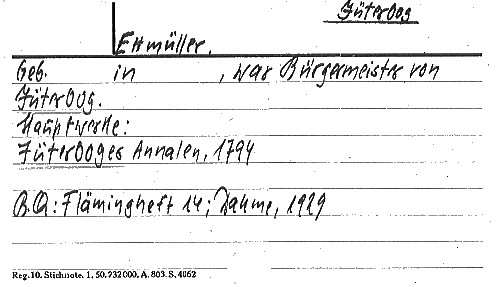 Jüterbog
Ettmüller.
Geb. in , war Bürgermeister von
Jüterbog.
Hauptwerke:
Jüterboges Annalen, 1794
B.Q.: Flämingheft 14; Dahme, 1929
Reg. 10. Stichnote. 1, 50. 732 000. A. 803. S. 4062